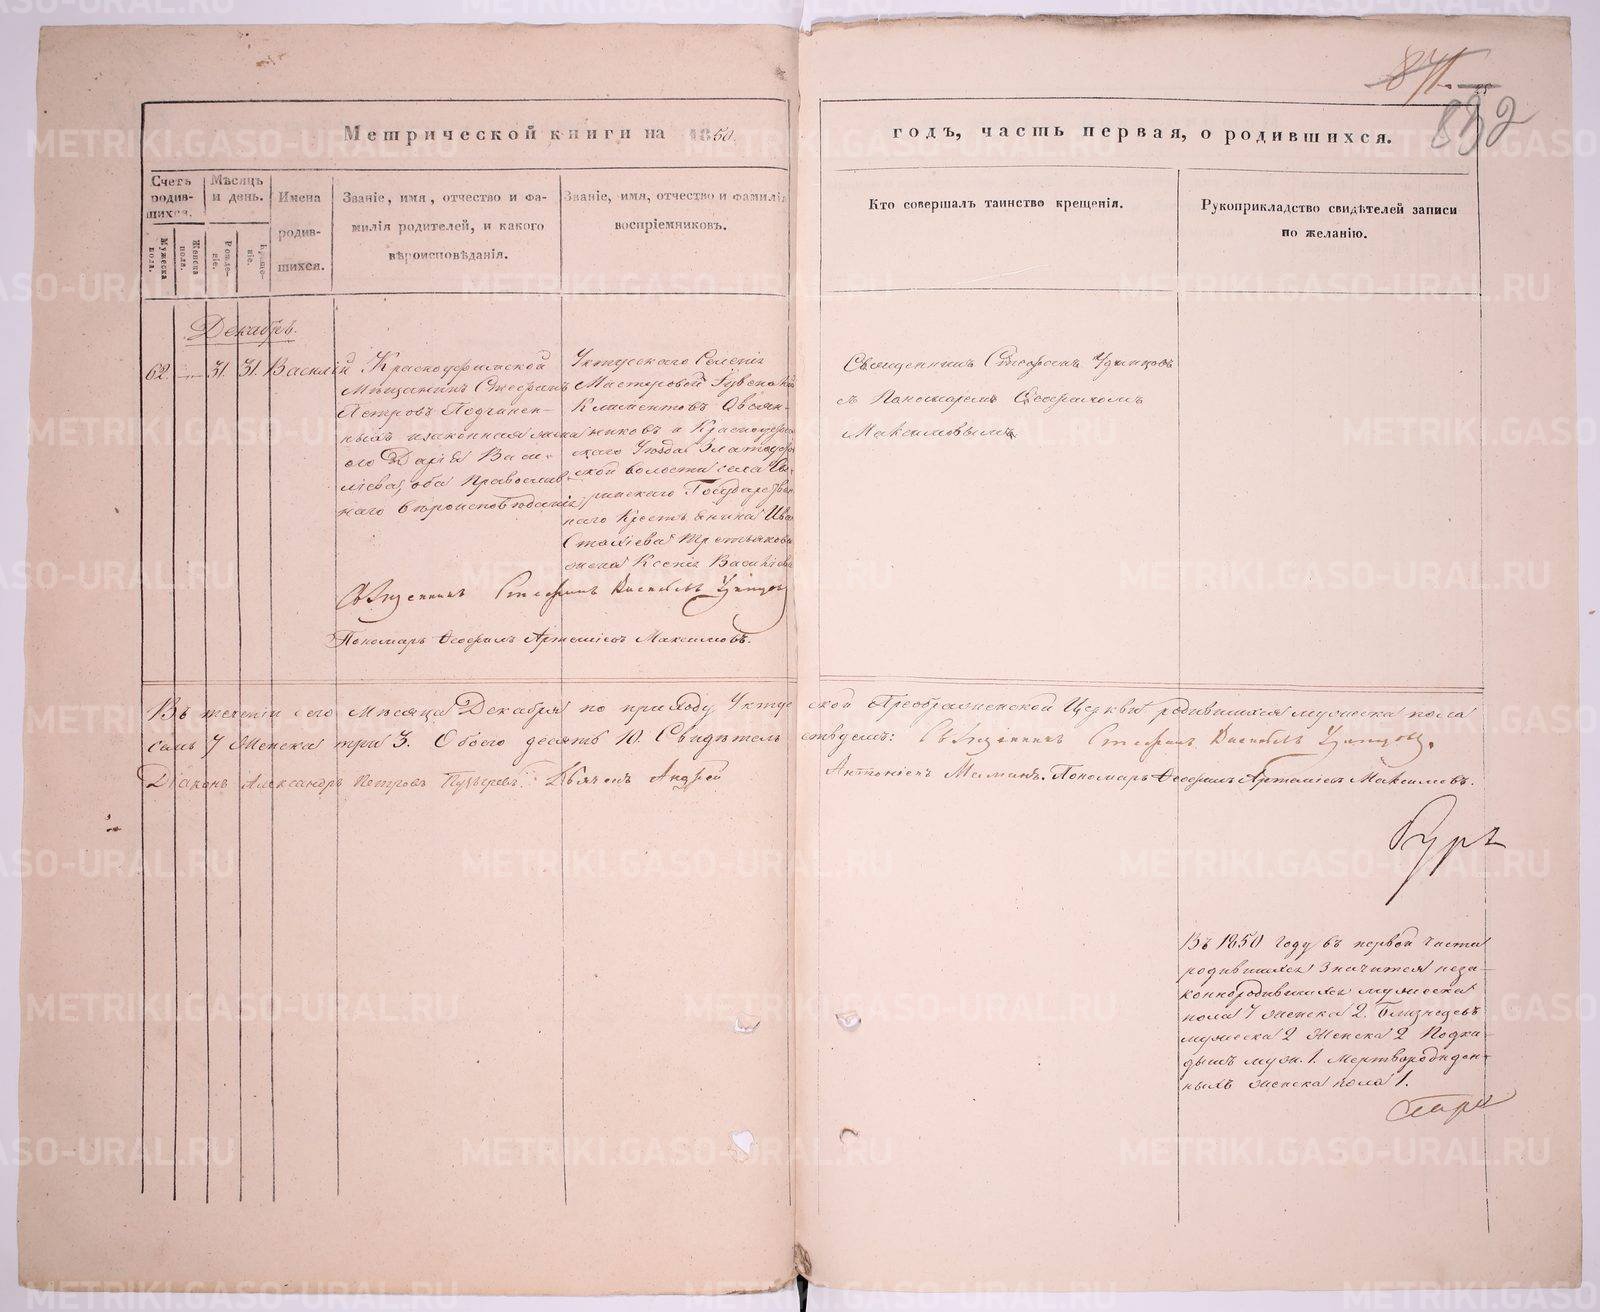 871.
892
Метрической книги на 1850.
годъ, часть первая, о родившихся.
Счетъ родив-шихся.
Мужеска пола.
Женска пола.
Мѣсяцъ и день.
Рожде-ніе.
Креще-ніе.
Имена родив-шихся.
Званіе, имя, отчество и фа-
милія родителей, и какого
вѣроисповѣданія.
Званіе, имя, отчество и фамилія
воспріемниковъ.
Кто совершалъ таинство крещенія.
Рукоприкладство свидѣтелей записи
по желанію.
Декабрь.
62. — 31. 31. Василій
Красноуфимской
Мѣщанинъ Стефанъ
Петровъ
законная жена
его Дарія Васи-
ліева, оба Православ-
наго вѣроисповѣданія
Уктусскаго Селенія
Мастеровой
Климентовъ Овсян-
никовъ и Красноуфим
скаго Уѣзда Златоустов
ской волости села
Государствен
наго крестьянина Ива
Третьякова
жена Ксенія Васильева
Священникъ Стефанъ
съ Пономаремъ Ѳеофиломъ
Максимовымъ.
Священникъ Стефанъ
Пономарь Ѳеофилъ Артеміевъ Максимовъ.
Въ теченіи сего Мѣсяца Декабря по приходу Уктус
ской Преображенской Церкви родившихся мужеска пола
семь 7 Женска три 3. Обоего десять 10. Свидѣтель
ствуемъ: Священникъ Стефанъ
Діаконъ Александръ Петровъ Дьячекъ Андрей
Пономарь Ѳеофилъ Артеміевъ Максимовъ.
Въ 1850 году въ первой части
родившихся значится неза-
коннородившихся мужеска
пола 7 женска 2. Близнецовъ
мужеска 2 Женска 2 Подки-
дышъ муж. 1. Мертворожден-
ныхъ женска пола 1.
METRIKI.GASO-URAL.RU